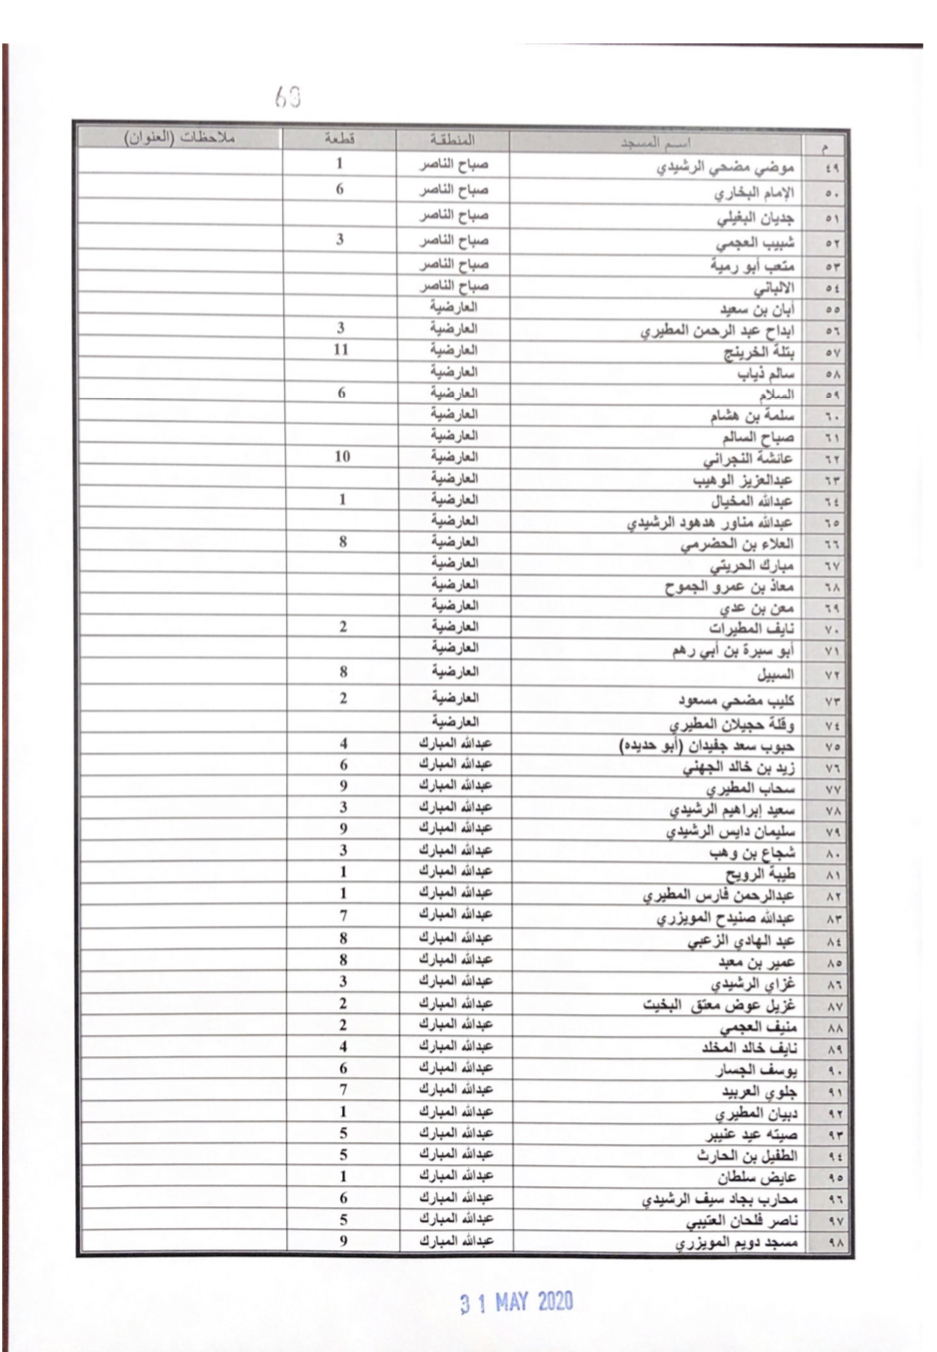 63
م اسم المسجد المنطقة قطعة ملاحظات (العنوان)
٤٩ موضي مضحي الرشيدي صباح الناصر 1
٥٠ الإمام البخاري صباح الناصر 6
٥١ جديان البغيلي صباح الناصر
٥٢ شبيب العجمي صباح الناصر 3
٥٣ متعب أبو رمية صباح الناصر
٥٤ الالباني صباح الناصر
٥٥ أبان بن سعيد العارضية
٥٦ ابداح عبد الرحمن المطيري العارضية 3
٥٧ بتلة الخرينج العارضية 11
٥٨ سالم ذياب العارضية
٥٩ السلام العارضية 6
٦٠ سلمة بن هشام العارضية
٦١ صباح السالم العارضية
٦٢ عائشة النجراني العارضية 10
٦٣ عبدالعزيز الوهيب العارضية
٦٤ عبدالله المخيال العارضية 1
٦٥ عبدالله مناور هدهود الرشيدي العارضية
٦٦ العلاء بن الحضرمي العارضية 8
٦٧ مبارك الحريتي العارضية
٦٨ معاذ بن عمرو الجموح العارضية
٦٩ معن بن عدي العارضية
٧٠ نايف المطيرات العارضية 2
٧١ أبو سبرة بن أبي رهم العارضية
٧٢ السبيل العارضية 8
٧٣ كليب مضحي مسعود العارضية 2
٧٤ وقلة حجيلان المطيري العارضية
٧٥ حبوب سعد جفيدان (أبو حديده) عبدالله المبارك 4
٧٦ زيد بن خالد الجهني عبدالله المبارك 6
٧٧ سحاب المطيري عبدالله المبارك 9
٧٨ سعيد إبراهيم الرشيدي عبدالله المبارك 3
٧٩ سليمان دايس الرشيدي عبدالله المبارك 9
٨٠ شجاع بن وهب عبدالله المبارك 3
٨١ طيبة الرويح عبدالله المبارك 1
٨٢ عبدالرحمن فارس المطيري عبدالله المبارك 1
٨٣ عبدالله صنيدح المويزري عبدالله المبارك 7
٨٤ عبد الهادي الزعبي عبدالله المبارك 8
٨٥ عمير بن معبد عبدالله المبارك 8
٨٦ غزاي الرشيدي عبدالله المبارك 3
٨٧ غزيل عوض معتق البخيت عبدالله المبارك 2
٨٨ منيف العجمي عبدالله المبارك 2
٨٩ نايف خالد المخلد عبدالله المبارك 4
٩٠ يوسف الجسار عبدالله المبارك 6
٩١ جلوي العربيد عبدالله المبارك 7
٩٢ دبيان المطيري عبدالله المبارك 1
٩٣ صيته عيد عنيبر عبدالله المبارك 5
٩٤ الطفيل بن الحارث عبدالله المبارك 5
٩٥ عايض سلطان عبدالله المبارك 1
٩٦ محارب بجاد سيف الرشيدي عبدالله المبارك 6
٩٧ ناصر فلحان العتيبي عبدالله المبارك 5
٩٨ مسجد دويم المويزري عبدالله المبارك 9
31 MAY 2020